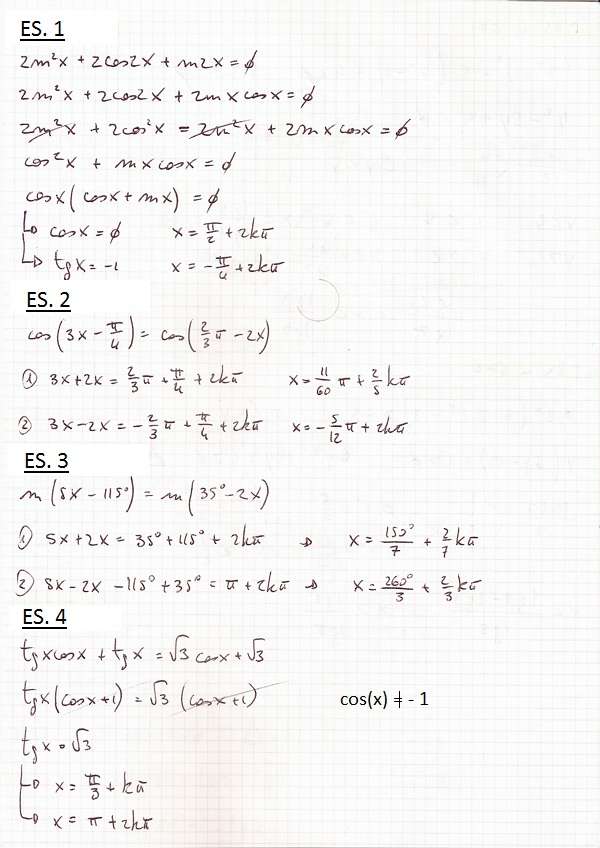 ES. 1
2m²x + 2cos2x + m2x = ∅
2m²x + 2cos2x + 2mxcosx = ∅
2m²x + 2cos²x = 2m²x + 2mxcosx = ∅
cos²x + mxcosx = ∅
cosx(cosx + mx) = ∅
↳ cosx = ∅ x = π/2 + 2kπ
↳ tgx = -1 x = -π/4 + 2kπ
ES. 2
cos(3x - π/4) = cos(2/3π - 2x)
① 3x + 2x = 2/3π + π/4 + 2kπ x = 11/60π + 2/5kπ
② 3x - 2x = -2/3π + π/4 + 2kπ x = -5/12π + 2kπ
ES. 3
m(5x - 115°) = m(35° - 2x)
① 5x + 2x = 35° + 115° + 2kπ → x = 150°/7 + 2/7kπ
② 5x - 2x - 115° + 35° = π + 2kπ → x = 260°/3 + 2/3kπ
ES. 4
tgxcosx + tgx = √3cosx + √3
tgx(cosx + 1) = √3(cosx + 1) cos(x) ≠ - 1
tgx = √3
↳ x = π/3 + kπ
↳ x = π + 2kπ